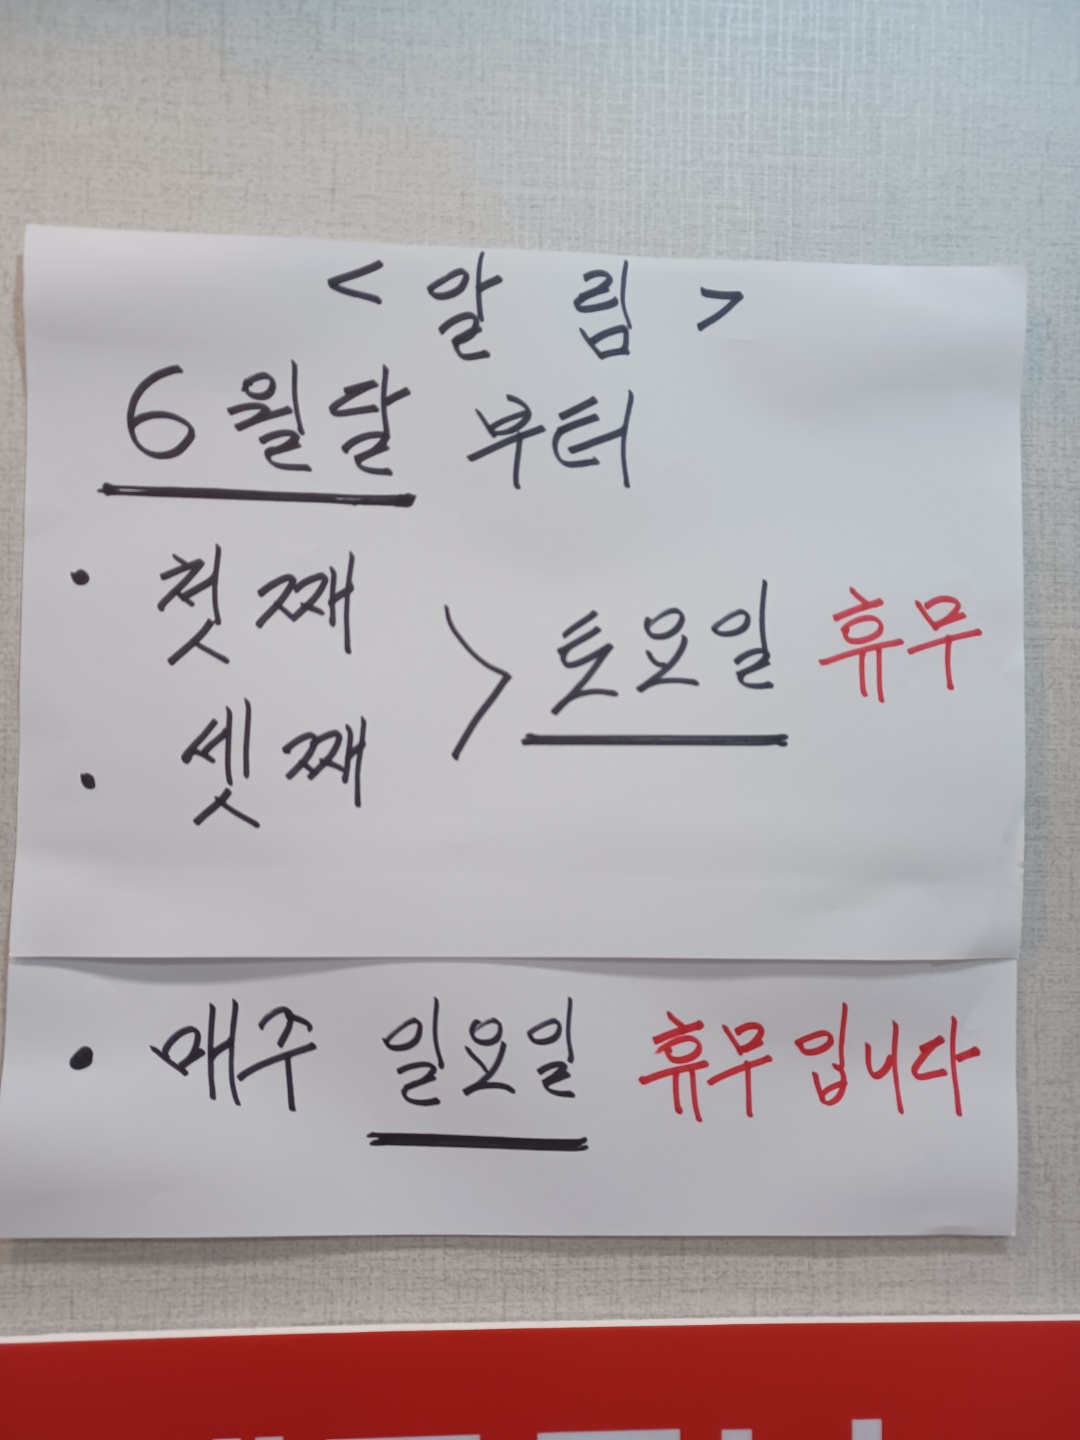 < 알 림 >
6월달 부터
• 첫째
• 셋째
> 토요일 휴무
• 매주 일요일 휴무입니다